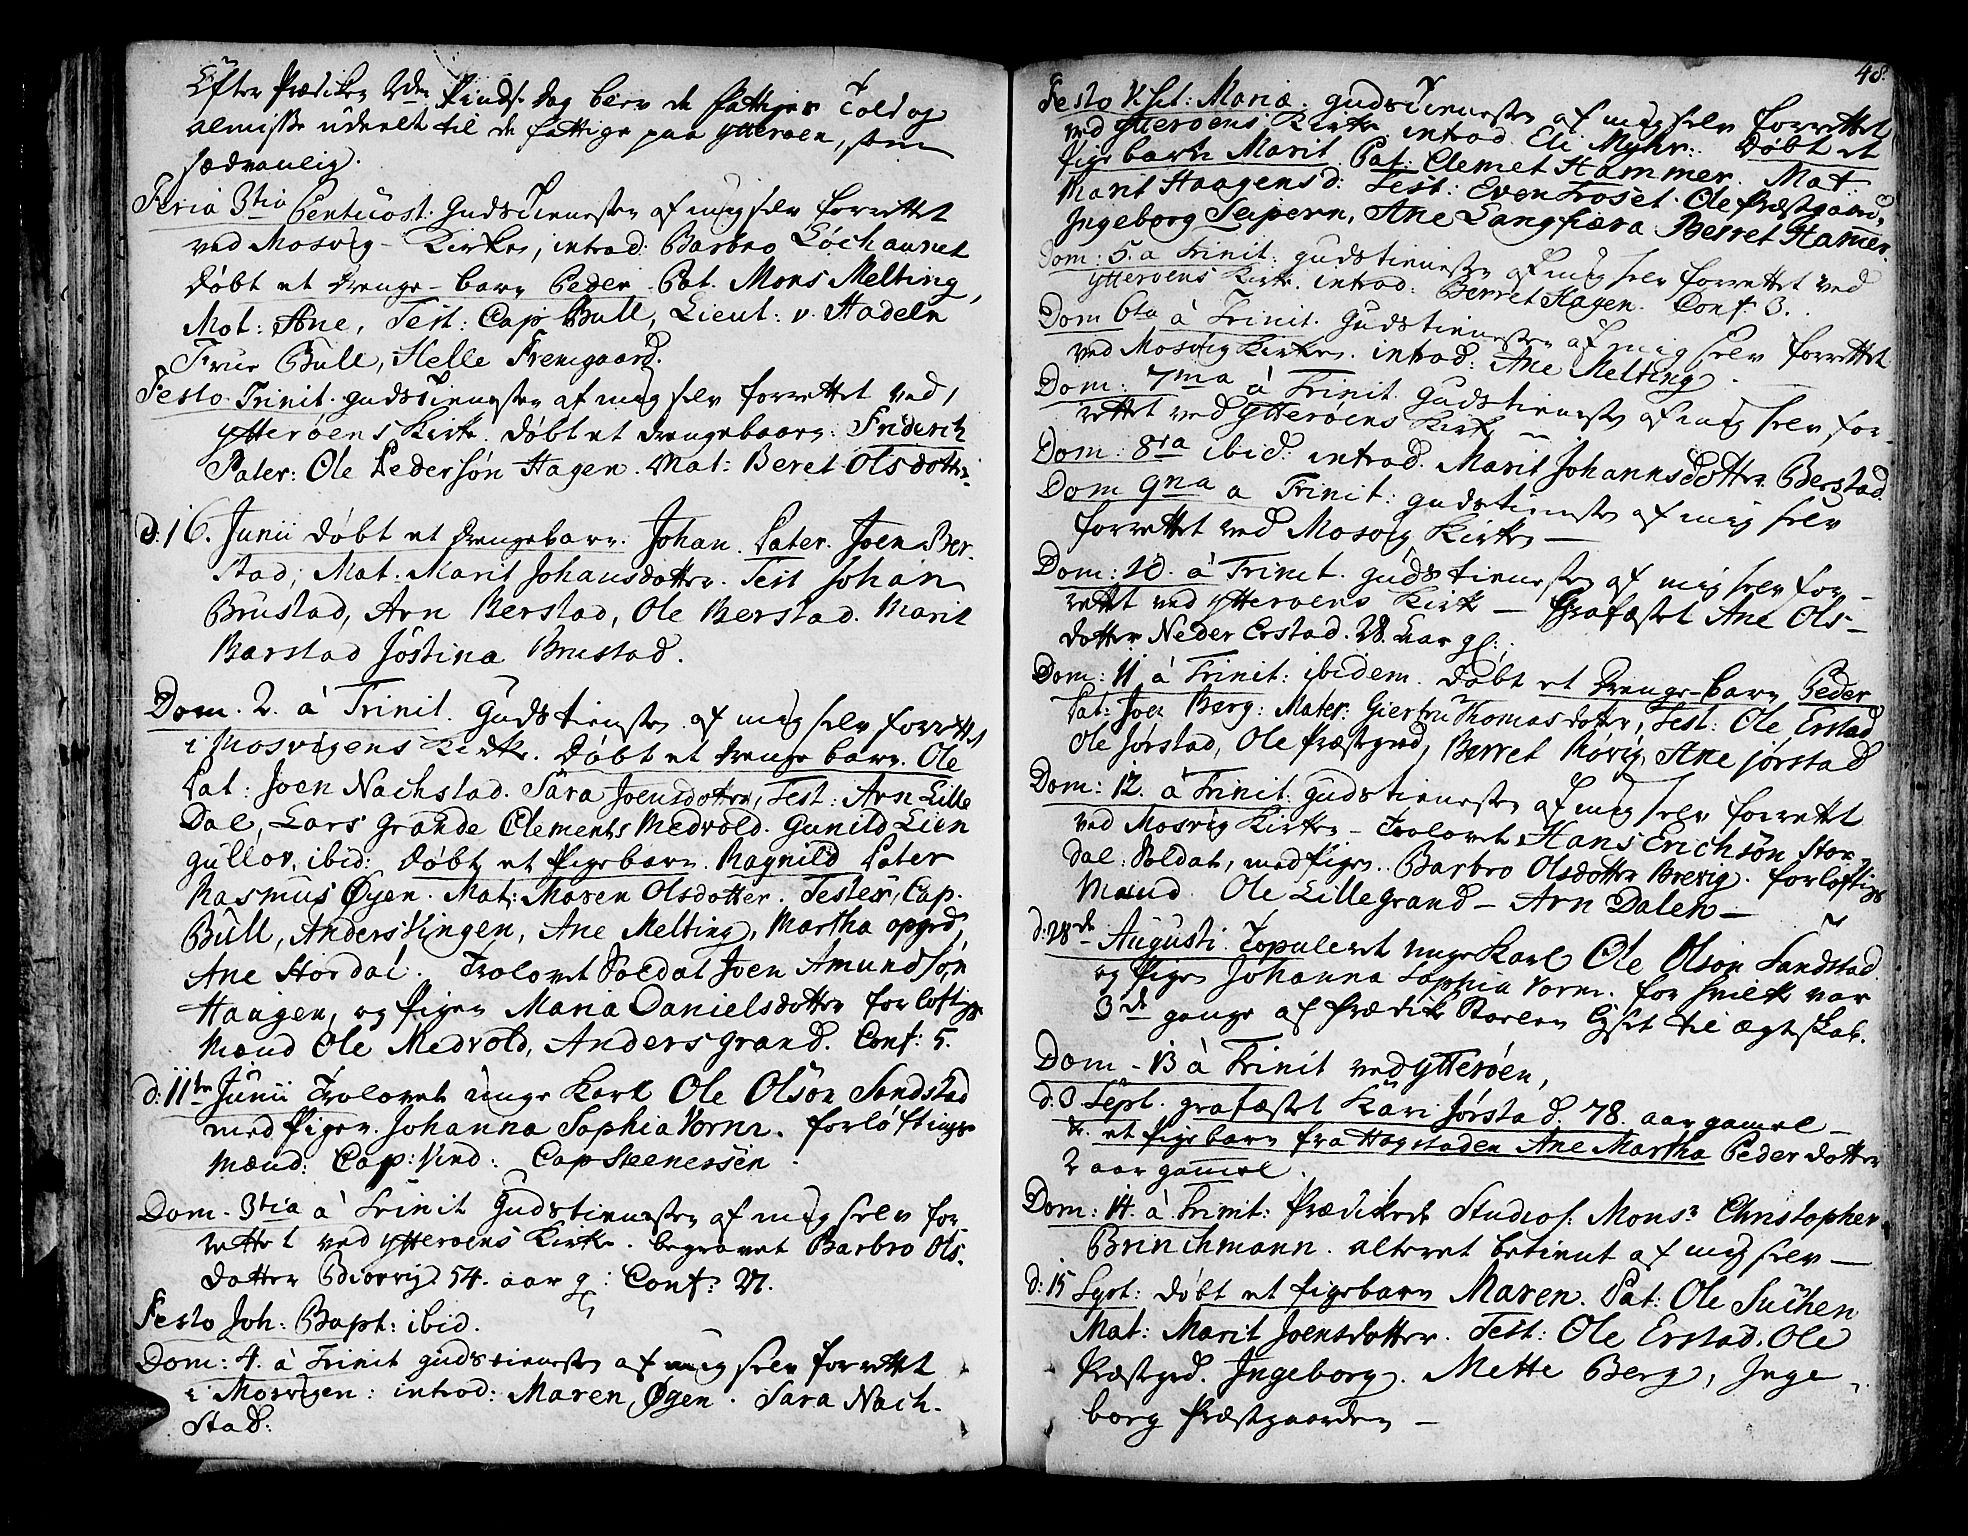 Efter Prædiken 2den Pindse Dag blev de fattiges Told og
almisse udeelt til de fattige paa ytterøen, som
sædvanlig.
Feria 3tia Pentecost: Gudstienesten af mig selv forrettet
ved Mosvig Kirke, introd: Barbro Løchaunet
døbt et drenge-barn Peder Pat. Mons Melting,
Mot: Ane, Test: Cap Bull, Lieut: v. Hadeln
Frue Bull, Helle Fremgaard.
Festo Trinit. gudstienesten af mig selv forrettet ved
ytterøens Kirke. døbt et drengebaarn: Friderich
Pater: Ole Pedersøn Hagen. Mat: Beret Olsdotter
d: 16. Junii døbt et drengebarn. Johan. Pater. Joen Ber-
stad, Mat: Marit Johansdotter. Test Johan
Brustad, Arn Berstad, Ole Berstad. Marit
Barstad Jostina Brustad.
Dom. 2. à Trinit. Gudstienesten af mig selv forrettet
i Mosvigens Kirke. døbt et drenge barn. Ole
Pat: Joen Nachstad. Sara Joensdotter, Test: Arn Lille
Dal, Lars grande Clements Medvold. Gunild Lien
gullov. ibid: døbt et Pigebarn. Ragnild Pater
Rasmus Øyen. Mat: Maren Olsdotter. Testes, Cap.
Bull, Anders Vingen, Ane Melting, Martha opgrd,
Ane Stordal. Trolovet Soldat Joen Amundsøn
Haugen, og Pigen Maria Danielsdotter forløftigs
Mænd Ole Medvold, Anders grand. Conf: 5.
d: 11te Junii Trolovet unge Karl Ole Olsøn Sandstad
med Pigen Johanna Sophia Vornr. forløftings
Mænd: Cap: Vind: Cap Steenersen.
Dom. 3tia à Trinit Gudstienesten af mig selv for-
rettet ved ytterøens Kirke. begravet Barbro Ols-
dotter Biørvig 54. aar gl: Conf: 27.
Festo Joh: Bapt: ibid.
Dom: 4. à Trinit gudstienesten af mig selv forrettet
i Mosvigen: introd: Maren Øyen. Sara Nach-
stad:
48.
Festo Visit: Mariæ. gudstienesten af mig selv forrettet
ved ytterøens Kirke. introd. Eli Myhr. døbt et
Pige barn Marit. Pat: Clemet Hammer. Mat
Marit Haagensd: Test: Even Troset. Ole Præstgaard,
Ingeborg Seipern, Ane Langfiæra Berret Hamer.
Dom: 5. a Trinit: gudstienesten af mig selv forrettet ved
ytterøens Kirke. introd: Berret Hagen. Conf. 3.
Dom 6ta à Trinit. Gudstienesten af mig selv forrettet
ved Mosvig Kirke. introd: Ane Melting.
Dom: 7ma à Trinit. Gudstienesten af mig selv for-
rettet ved ytterøens Kirke
Dom: 8va ibid: introd. Marit Johannsdotter Berstad.
Dom 9na a Trinit: gudstienesten af mig selv
forrettet ved Mosvig Kirke —
Dom: 10. à Trinit. gudstienesten af mig selv for-
rettet ved ytterøens Kirke — Grafæstet Ane Ols-
dotter Neder Erstad. 28. aar gl:
Dom: 11 à Trinit: ibidem. døbt et drenge-barn Peder
Pat: Joen Berg: Mater: Giertru Thomasdotter, Test: Ole Erstad
Ole Jørstad, Ole Præstgrd, Berret Rovig, Ane jørstad
Dom: 12. à Trinit: gudstienesten af mig selv forrettet
ved Mosvig Kirke — Trolovet Hans Erichsøn Stor
dal: Soldat, med Pigen Barbro Olsdotter Brevig. forløftigs
Mænd Ole Lillegrand — Arn Dalen —
d: 28de Augusti. Copuleret unge Karl Ole Olson Sandstad
og Pigen Johanna Sophia Vornr. for hvilk var
3de gange af Prædike Stoelen lyst til ægteskab.
Dom. 13 à Trinit ved ytterøen,
d. 3 Sept. grafæstet Kari Jørstad. 78. aar gamel —
& et Pigebarn fra Hogstaden Ane Martha Peder dotter
2 aar gamel.
Dom: 14. à Trinit: Prædikede Studios: Monsr Christopher
Brinchmann. alteret betient af mig selv —
d: 15 Sept: døbt et Pigebarn Maren. Pat: Ole Suchen
Mat: Marit Joensdotter. Test: Ole Erstad. Ole
Præstgrd. Ingeborg. Mette Berg, Inge-
borg Præstgaarden —